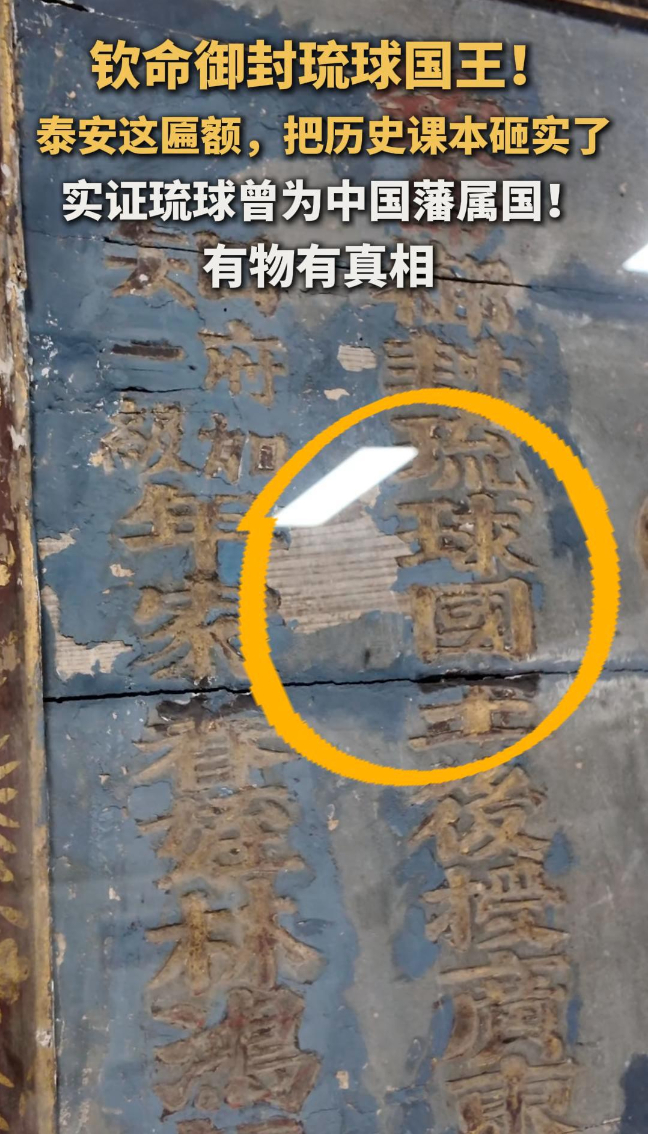 钦命御封琉球国王！
泰安这匾额，把历史课本砸实了
实证琉球曾为中国藩属国！
有物有真相
御封琉球國王後授廣東
府加
一級
年家眷姪林鴻